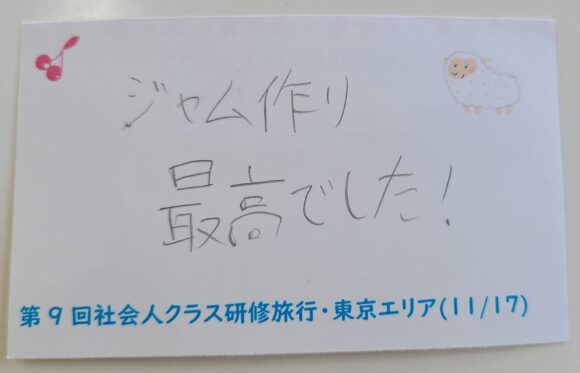 ジャム作り
最高でした!
第9回社会人クラス研修旅行・東京エリア(11/17)